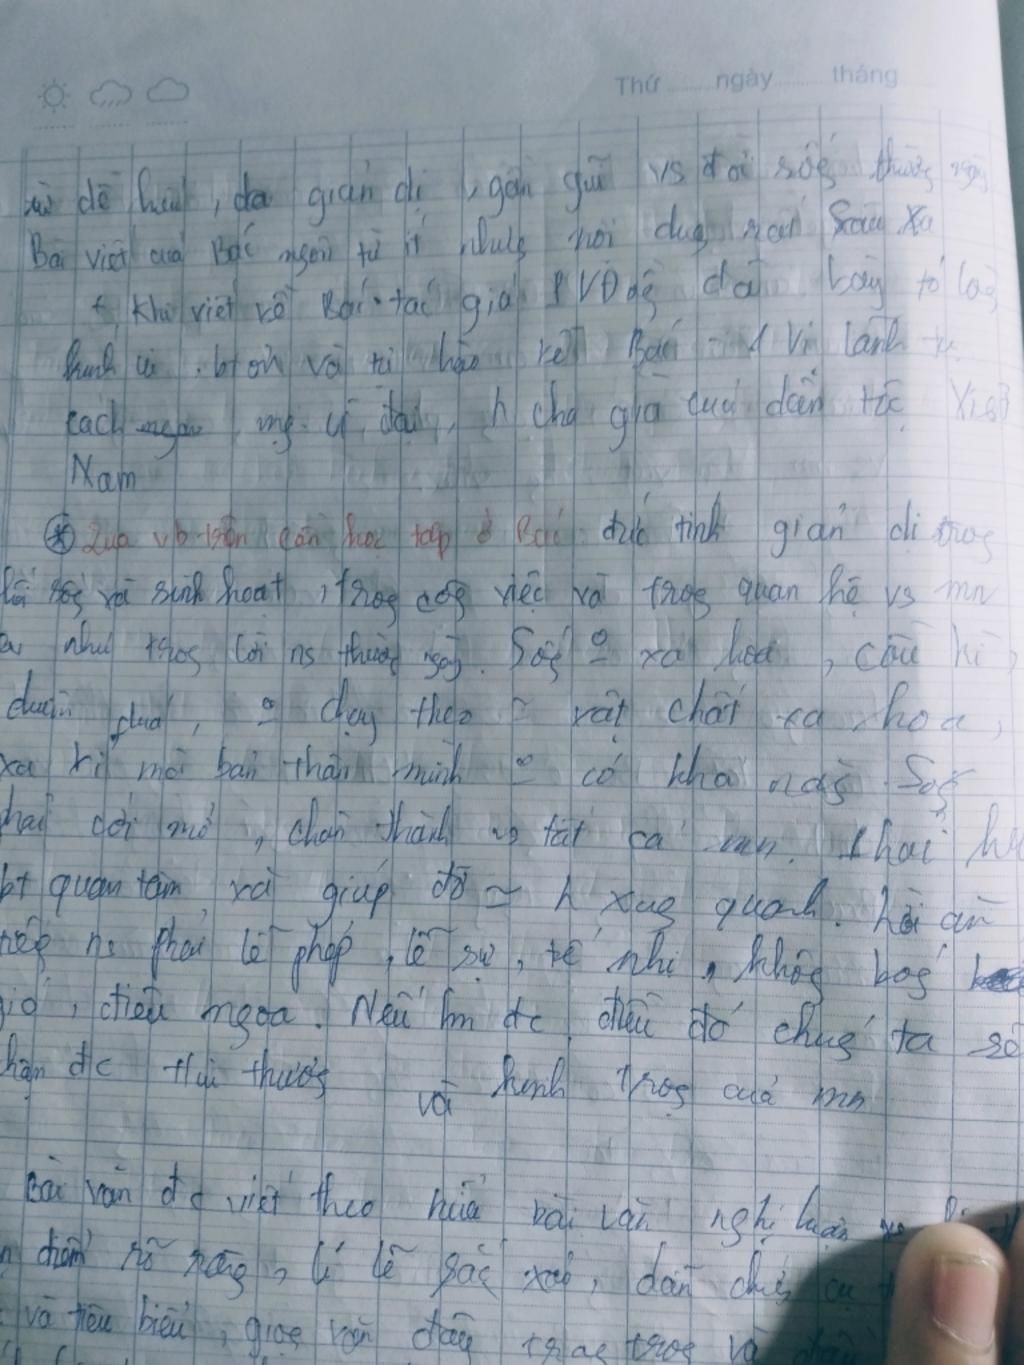 Thứ ngày tháng
dễ hiểu, da giản dị, gần gũi vs đời sốg thườg ngày
Bài viết của Bác ngôn từ ít nhưg nội dug rất sâu xa
+, Khi viết về Bác tác giả PVĐồg đã bày tỏ lòg
kính iu, bt ơn và tự hào về Bác - 1 vị lãnh tụ
cách mg vĩ đại, h cha già của dân tộc Việt
Nam
* Qua vb trên cần học tập ở Bác đức tính giản dị trog
lối sốg và sinh hoạt, trog côg việc và trog quan hệ vs mn
như trog lời ns thườg ngày. Sốg o xa hoa, cầu kì,
đuổi đua, o chạy theo = vật chất xa hoa,
xa xỉ mà bản thân mình o có khả năg Sốg
cởi mở, chân thành vs tất cả mn. Phải
bt quan tâm và giúp đỡ = h xug quanh. Lời ăn
tiếg ns phải lễ phép, lễ sự, tế nhị, khôg bóg
gió, điêu ngoa. Nếu lm đc điều đó chúg ta sẽ
nhận đc tình thươg và kính trọg của mn
Bài văn đc viết theo kiểu bài văn nghị luận
điểm rõ ràg, lí lẽ sắc xảo, dẫn chứg cụ
và tiêu biểu, giọg văn đầy trag trọg và